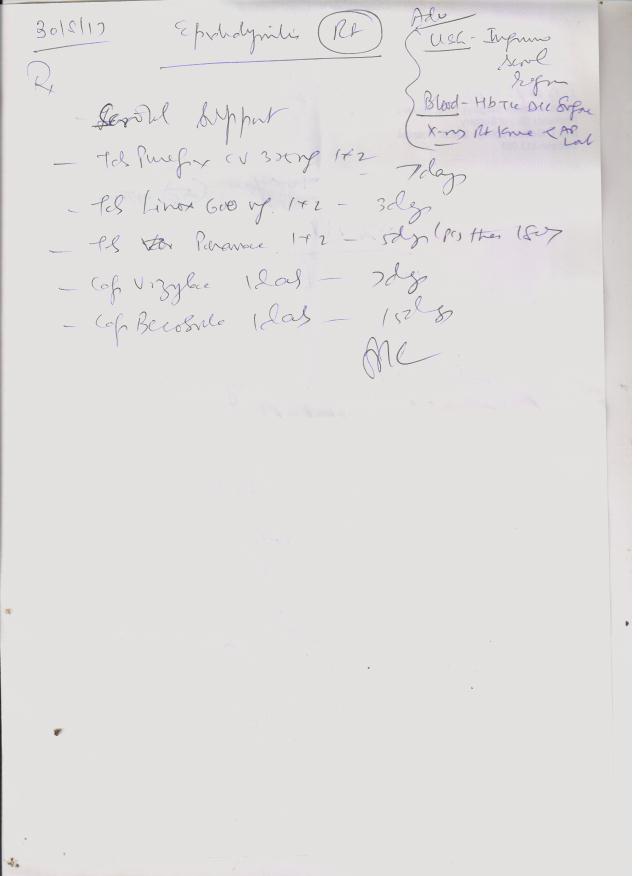 30/5/17
Epididymitis Rt
Adv
USG - Inguino
Scrotal
Region
Blood - Hb TLC DLC Sugar
X-ray Rt Knee < AP Lat
Rx
Scrotal Support
- Tab CV 1+2 - 7days
- Tab Linox 600 mg 1+2 - 3dys
- Tab 1+2 - 5dys (then SOS)
- Cap Vizylac 1 dab - 7dys
- Cap Becosule 1 dab - 15dys